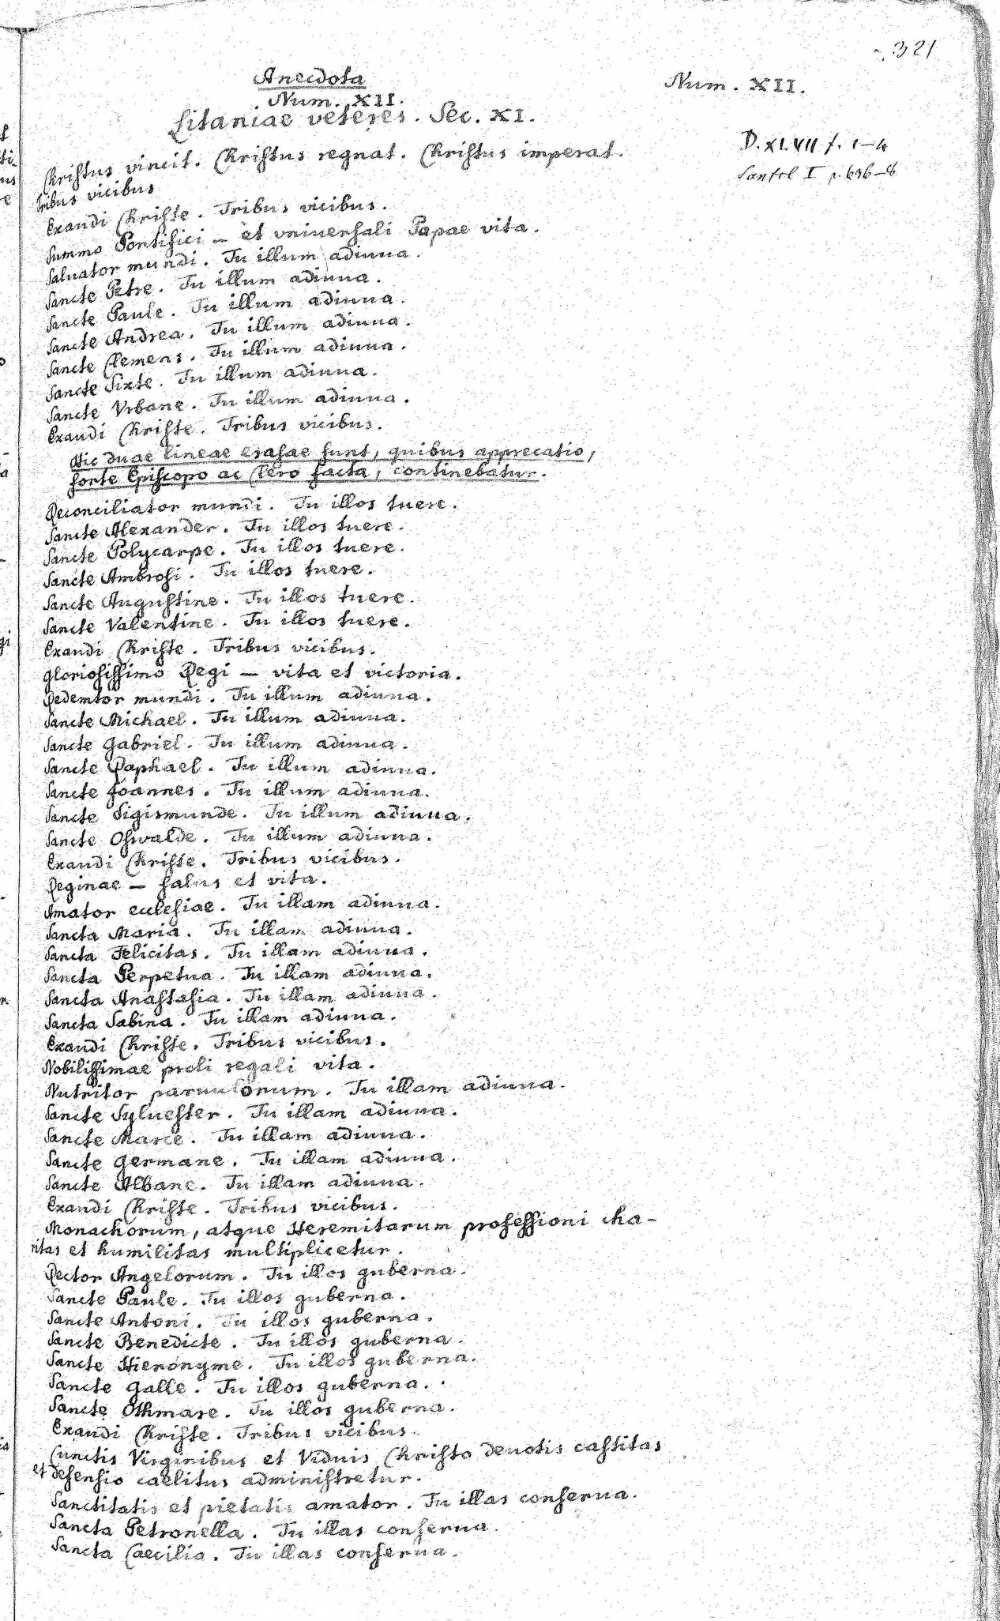 321
Anecdota
Num. XII.
Litaniae veteres. Sec. XI.
Num. XII.
D. XLVII f. 1-4
Christus vincit. Christus regnat. Christus imperat.
Tribus vicibus
Exaudi Christe. Tribus vicibus.
Summo Pontifici — et vniuersali Papae vita.
Saluator mundi. Tu illum adiuua.
Sancte Petre. Tu illum adiuua.
Sancte Paule. Tu illum adiuua.
Sancte Andrea. Tu illum adiuua.
Sancte Clemens. Tu illum adiuua.
Sancte Sixte. Tu illum adiuua.
Sancte Vrbane. Tu illum adiuua.
Exaudi Christe. Tribus vicibus.
Hic duae lineae erasae sunt, quibus apprecatio,
forte Episcopo ac Clero facta, continebatur.
Reconciliator mundi. Tu illos tuere.
Sancte Alexander. Tu illos tuere.
Sancte Polycarpe. Tu illos tuere.
Sancte Ambrosi. Tu illos tuere.
Sancte Augustine. Tu illos tuere.
Sancte Valentine. Tu illos tuere.
Exaudi Christe. Tribus vicibus.
Gloriosissimo Regi — vita et victoria.
Redemtor mundi. Tu illum adiuua.
Sancte Michael. Tu illum adiuua.
Sancte Gabriel. Tu illum adiuua.
Sancte Raphael. Tu illum adiuua.
Sancte Joannes. Tu illum adiuua.
Sancte Sigismunde. Tu illum adiuua.
Sancte Oswalde. Tu illum adiuua.
Exaudi Christe. Tribus vicibus.
Reginae — salus et vita.
Amator ecclesiae. Tu illam adiuua.
Sancta Maria. Tu illam adiuua.
Sancta Felicitas. Tu illam adiuua.
Sancta Perpetua. Tu illam adiuua.
Sancta Anastasia. Tu illam adiuua.
Sancta Sabina. Tu illam adiuua.
Exaudi Christe. Tribus vicibus.
Nobilissimae proli regali vita.
Nutritor paruulorum. Tu illam adiuua.
Sancte Syluester. Tu illam adiuua.
Sancte Marce. Tu illam adiuua.
Sancte Germane. Tu illam adiuua.
Sancte Albane. Tu illam adiuua.
Exaudi Christe. Tribus vicibus.
Monachorum, atque Heremitarum professioni cha-
ritas et humilitas multiplicetur.
Rector Angelorum. Tu illos guberna.
Sancte Paule. Tu illos guberna.
Sancte Antoni. Tu illos guberna.
Sancte Benedicte. Tu illos guberna.
Sancte Hieronyme. Tu illos guberna.
Sancte Galle. Tu illos guberna.
Sancte Othmare. Tu illos guberna.
Exaudi Christe. Tribus vicibus.
Cunctis Virginibus et Viduis Christo deuotis castitas
et defensio caelitus administretur.
Sanctitatis et pietatis amator. Tu illas conserua.
Sancta Petronella. Tu illas conserua.
Sancta Caecilia. Tu illas conserua.